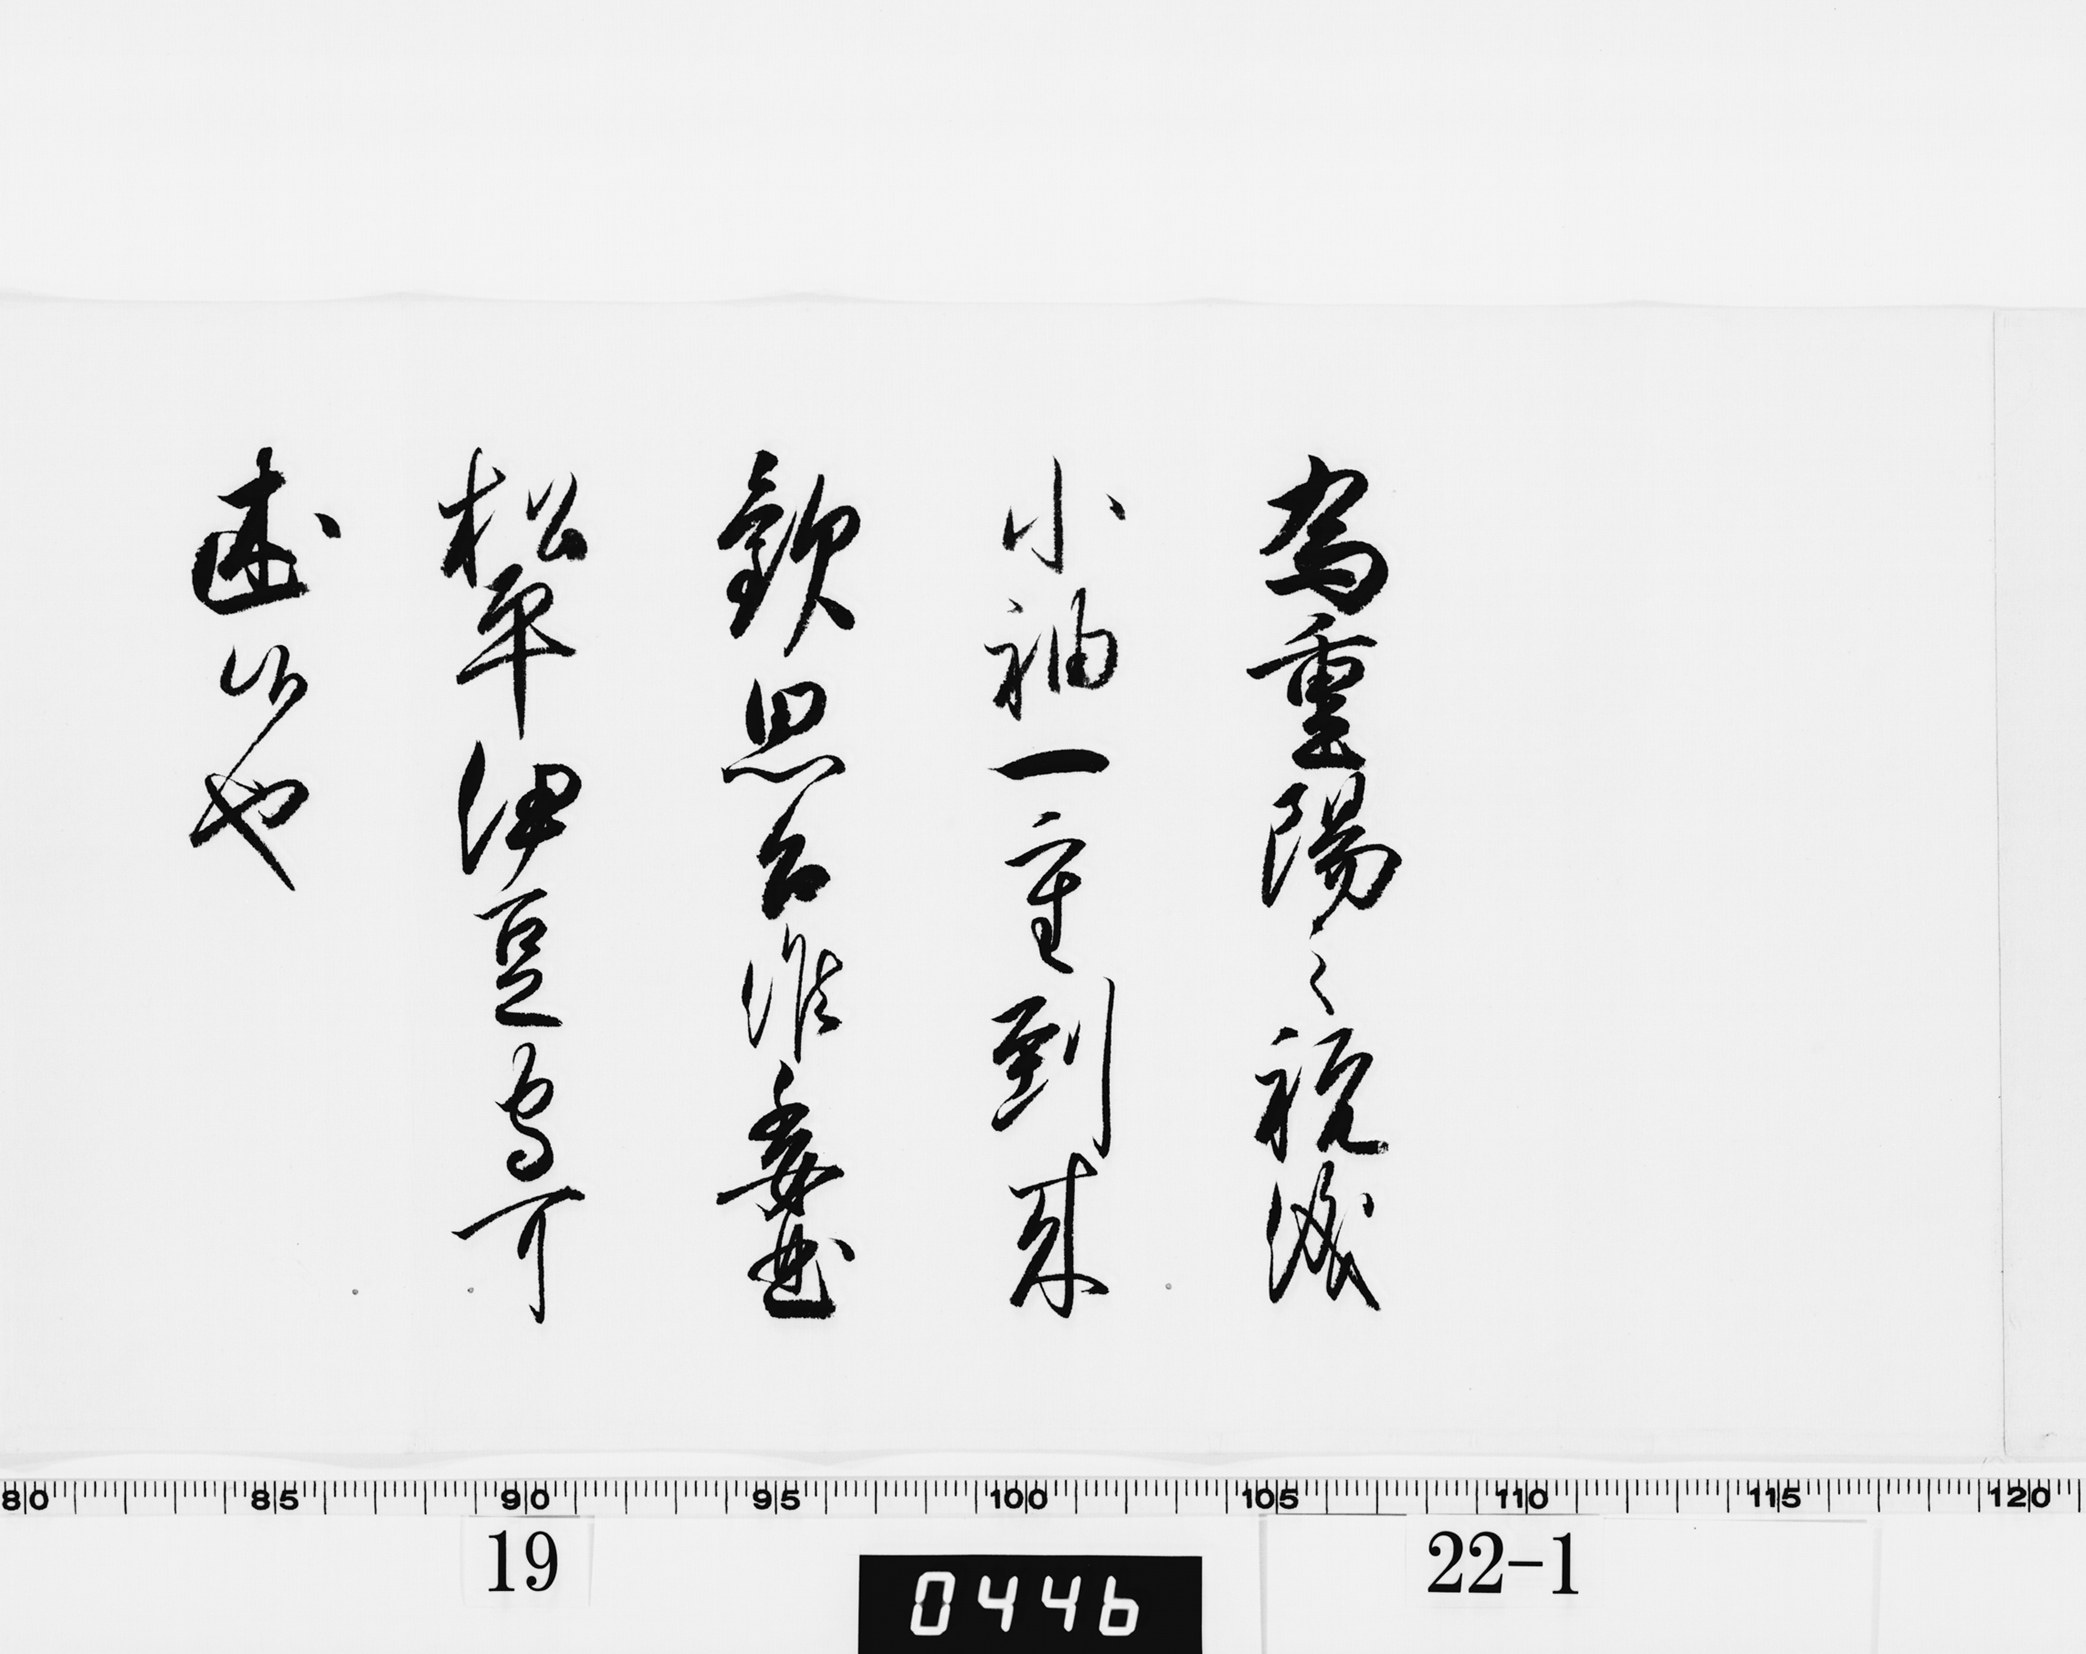 為重陽之祝儀
小袖一重到来
歓思召候委曲
松平伊豆守可
述候也
80 85 90 95 100 105 110 115 120
19
22-1
0446